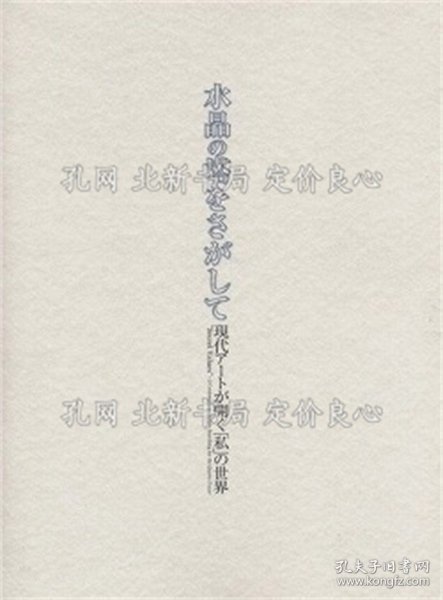 水晶の塔をさがして
現代アートが開く「私」の世界
孔网 北新书局 定价良心
孔网 北新书局 定价良心
孔网 北新书局 定价良心
孔夫子旧书网
www.kongfz.com